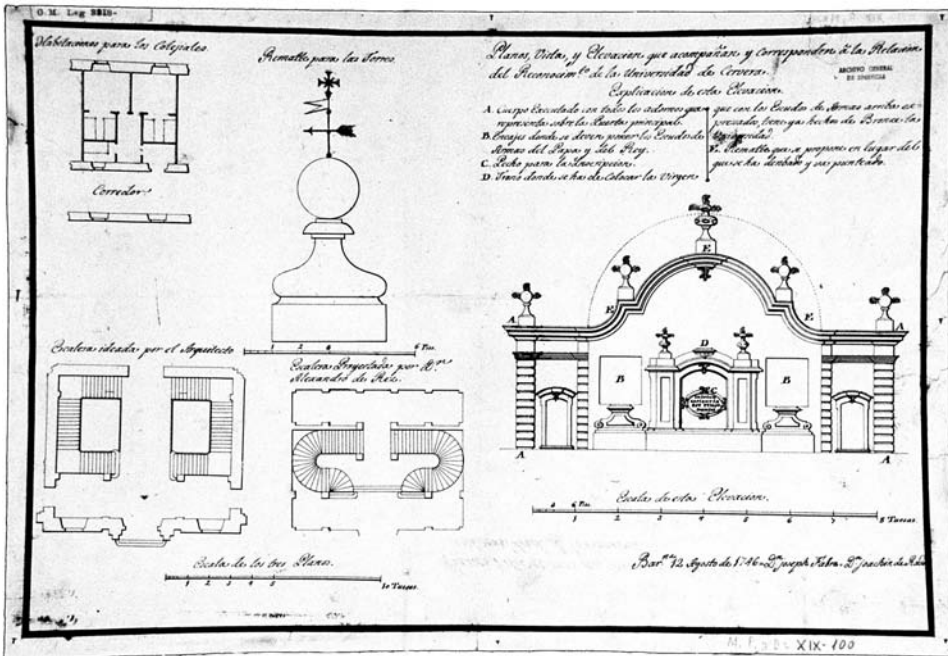 G. M. Leg
Habitaciones para los Colegiales.
Corredor.
Remate para las Torres.
6 Pies.
Escalera ideada por el Arquitecto
Escalera Proyectada por Dn.
Alexandro de Rez.
Escala de los tres Planos.
1 2 3 4 5 10 Tuesas.
Planos, Vista, y Elevacion que acompañan, y corresponden à la Relacion
del Reconocimto. de la Universidad de Cervera.
ARCHIVO GENERAL
DE SIMANCAS
Explicacion de esta Elevacion.
A. Cuerpo Executado con todos los adornos que
representa sobre la Puerta principal.
B. Encajes donde se deven poner los Escudos de
Armas del Papa y del Rey.
C. para la Inscripcion.
D. Trono donde se ha de Colocar la Virgen
que con los Escudos de Armas arriba ex-
presados, tiene ya hechos de Bronce la
Universidad.
E. Remate que se propone en lugar del
que se ha y va punteado.
E
E
E
A
A
D
B
C
B
A
A
Escala de esta Elevacion.
1 2 3 4 5 6 7 8 Tuesas.
Barna. 12 Agosto de 1746 = Dn. Joseph Fabre = Dn. Joachin de
XIX-100